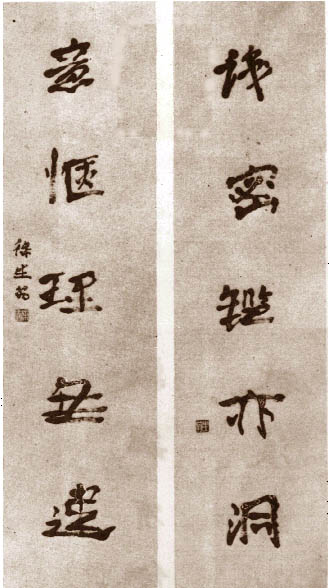 識密鑑亦洞
意愜理無違
徐生翁